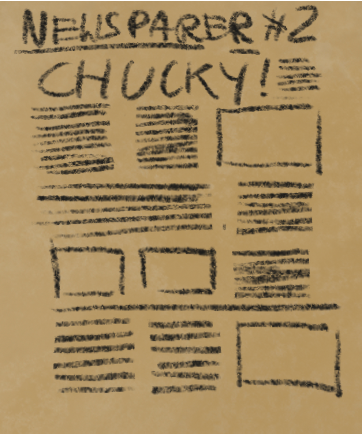 NEWSPARER #2
CHUCKY!